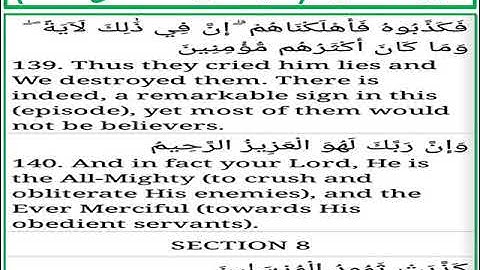 فَكَذَّبُوهُ فَأَهْلَكْنَاهُمْ ۗ إِنَّ فِي ذَٰلِكَ لَآيَةً ۖ
وَمَا كَانَ أَكْثَرُهُم مُّؤْمِنِينَ
139. Thus they cried him lies and
We destroyed them. There is
indeed, a remarkable sign in this
(episode), yet most of them would
not be believers.
وَإِنَّ رَبَّكَ لَهُوَ الْعَزِيزُ الرَّحِيمُ
140. And in fact your Lord, He is
the All-Mighty (to crush and
obliterate His enemies), and the
Ever Merciful (towards His
obedient servants).
SECTION 8
كَذَّبَتْ ثَمُودُ الْمُرْسَلِينَ